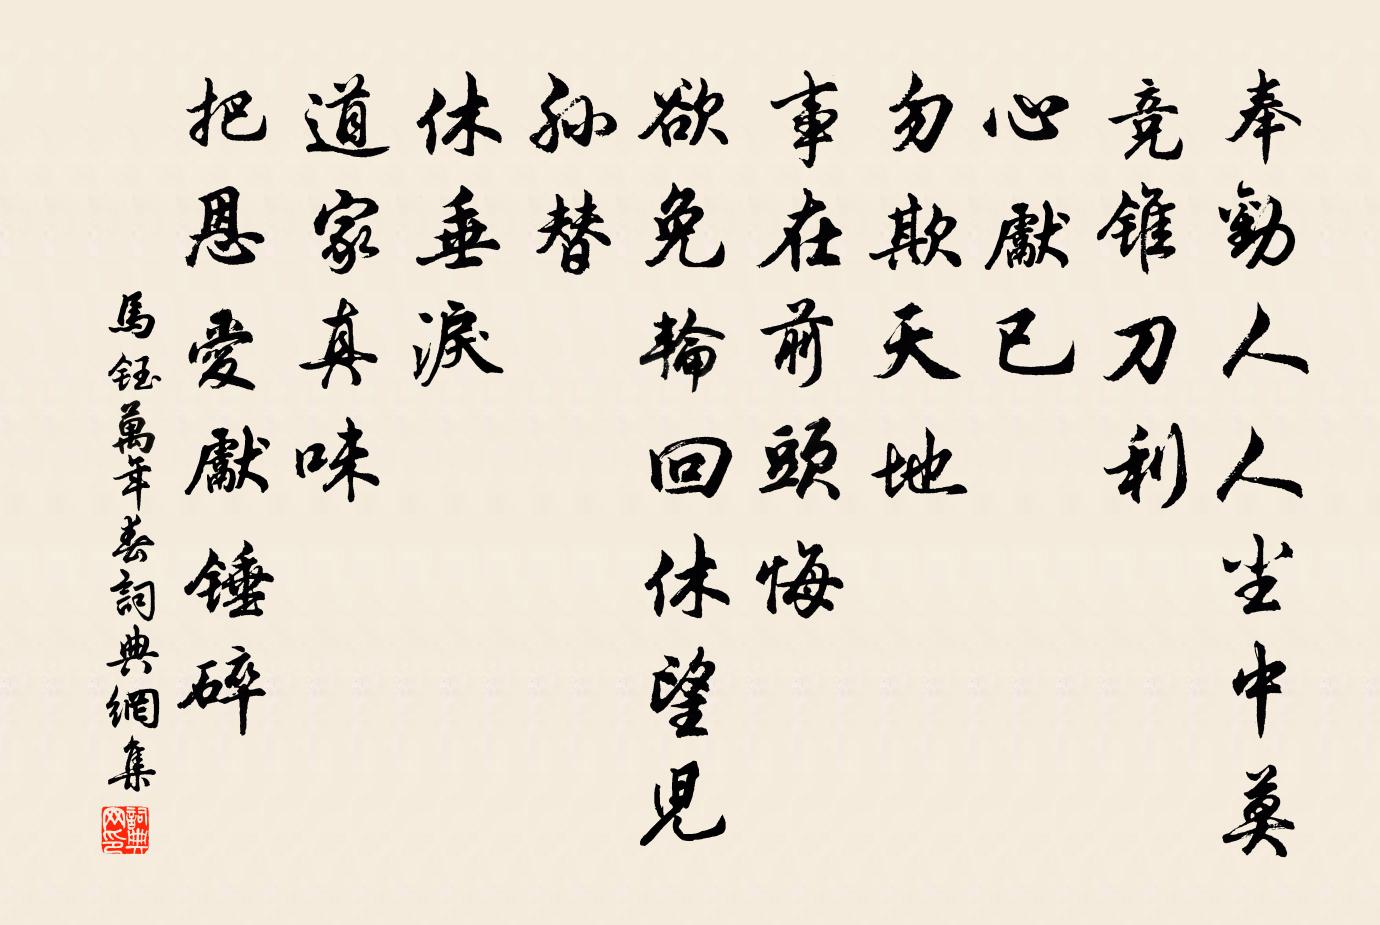 奉勸人人尘中莫
竞錐刀利
心獻已
勿欺天地
事在前頭悔
欲免輪回休望児
孫替
休垂淚
道家真味
把恩愛獻錘碎
馬鈺萬年春詞典網集
詞典网印